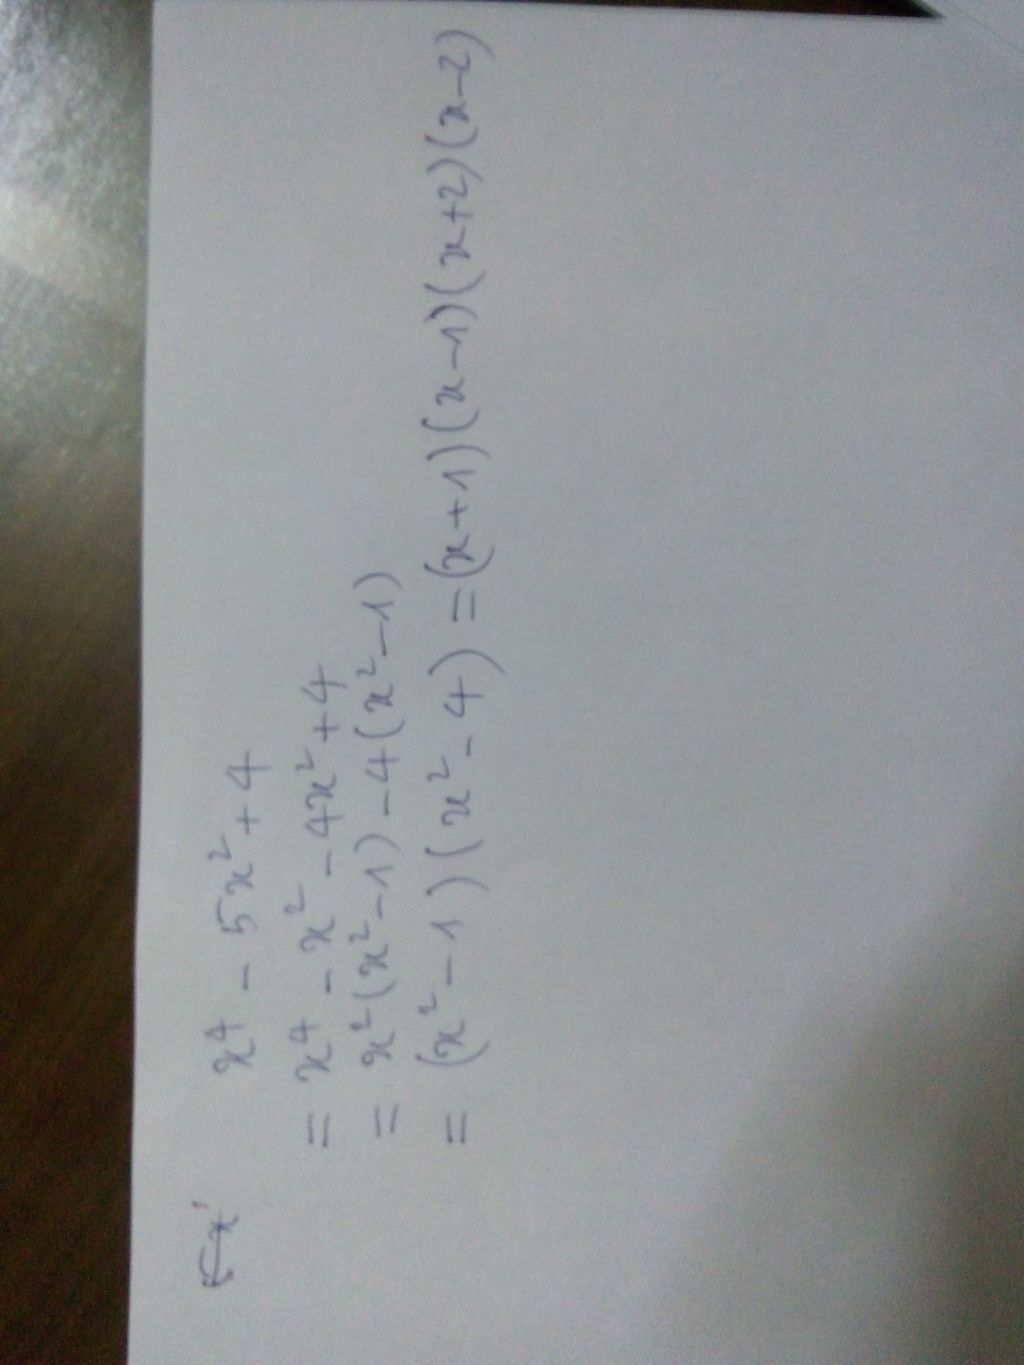 Ex' x⁴ - 5x² + 4
= x⁴ - x² - 4x² + 4
= x²(x² - 1) - 4(x² - 1)
= (x² - 1)(x² - 4) = (x + 1)(x - 1)(x + 2)(x - 2)